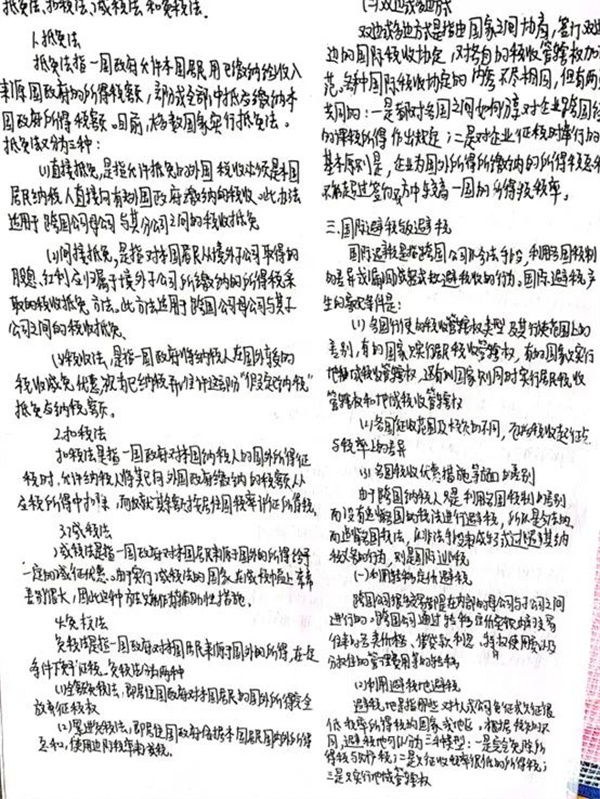 抵免法、扣税法、减税法和免税法.
1.抵免法
抵免法指一国政府允许本国居民用已缴纳给收入
来源国政府的所得税额,部分或全部冲抵应缴纳本
国政府所得税额。目前,多数国家实行抵免法。
抵免法又分三种:
(1)直接抵免,是指允许抵免的外国税收必须是本国
居民纳税人直接向外国政府缴纳的税收。此办法
适用于跨国公司母公司与其分公司之间的税收抵免
(2)间接抵免,是指对本国居民从境外子公司取得的
股息、红利应归属于境外子公司所缴纳的所得税采
取的税收抵免方法。此方法适用于跨国公司母公司与其子
公司之间的税收抵免。
(3)税收饶让,是指一国政府将纳税人在国外享受的
税收减免优惠,视为已纳税
抵免与纳税额。
2.扣税法
扣税法是指一国政府对本国纳税人的国外所得征
税时,允许纳税人将其已向外国政府缴纳的税额从
应税所得中扣除,余额按居住国税率计征所得税。
3.减税法
减税法是指一国政府对本国居民来源于国外的所得给予
一定的减征优惠。由于实行减税法的国家在减税幅度上
差别很大,因此这种方法只能作为辅助性措施。
4.免税法
免税法是指一国政府对本国居民来源国外的所得,在一定
条件下免予征税。免税法分为两种
(1)全额免税法,即居住国政府对本国居民的国外所得完全
放弃征税权
(2)累进免税法,即居住国政府依据本国居民国内外所得
总和,使用适用税率来免税。
(二)双边或多边方式
双边或多边方式是指由国家之间协商,签订双边
边的国际税收协定,对各自的税收管辖权加以
范。各种国际税收协定的内容不尽相同,但有两
共同的:一是都对各国之间如何分享对企业跨国经
的课税所得作出规定;二是对企业征税时奉行的
基本原则是,企业为国外所得所缴纳的所得税
不能超过签约双方中较高一国的所得税税率。
三.国际避税与避税
国际避税是指跨国公司以合法手段,利用各国税制
的差异或漏洞或优惠避税收的行为。国际避税产
生的客观条件是:
(1)各国行使的税收管辖权类型及其行使范围上的
差别,有的国家只实行居民税收管辖权,有的国家只实行
地域税收管辖权,还有的国家则同时实行居民税收
管辖权和地域税收管辖权
(2)各国征收范围及税基的不同,包括税收
与税率上的差异
(3)各国税收优惠措施等方面的差别
由于跨国纳税人只是利用各国税制的差别
而没有违背国的税法进行避税,所以是合法的。
而违背国税法,以非法手段来减轻或逃避其纳
税义务的行为,则是国际逃税
(一)利用转移定价避税
跨国公司很多贸易是在内部的母公司与子公司之间
进行的。跨国公司通过转移定价
往来的各类价格、借贷款利息、特权使用费以及
分摊性的管理费用等的转移。
(二)利用避税地避税
避税地是指那些对外公司免征或只征很
低税率所得税的国家或地区。根据税制的不
同,避税地可以分为三种模型:一是完全免除所
得税与财产税;二是只征收税率很低的所得税;
三是只实行地域管辖权